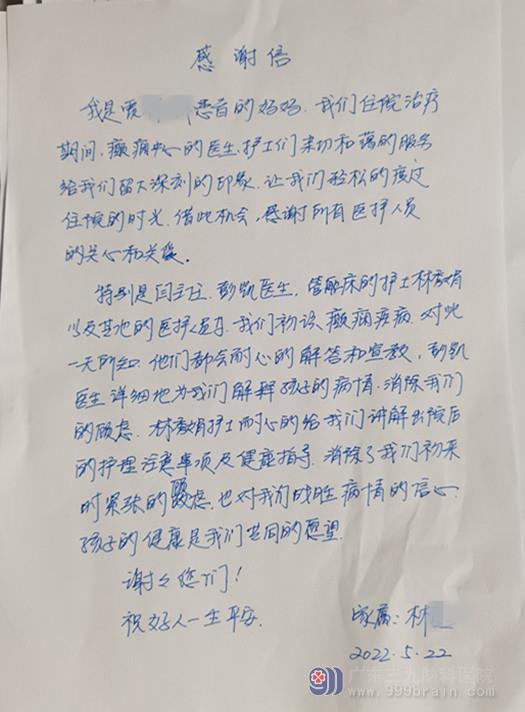 感谢信
我是贾 患者的妈妈。我们住院治疗
期间，癫痫中心的医生、护士们亲切和蔼的服务
给我们留下深刻的印象，让我们轻松的度过
住院的时光。借此机会，感谢所有医护人员
的关心和关爱。
特别是闫主任、彭凯医生，管床的护士林
以及其他的医护人员。我们初诊、癫痫疾病，对此
一无所知，他们都会耐心的解答和宣教，彭凯
医生详细地为我们解释孩子的病情，消除我们
的顾虑。林 护士耐心的给我们讲解出院后
的护理注意事项及健康指导，消除了我们初来
时紧张的顾虑，也对我们战胜病情的信心。
孩子的健康是我们共同的愿望。
谢谢您们！
祝好人一生平安。
家属：林
2022.5.22
广东三九脑科医院
www.999brain.com